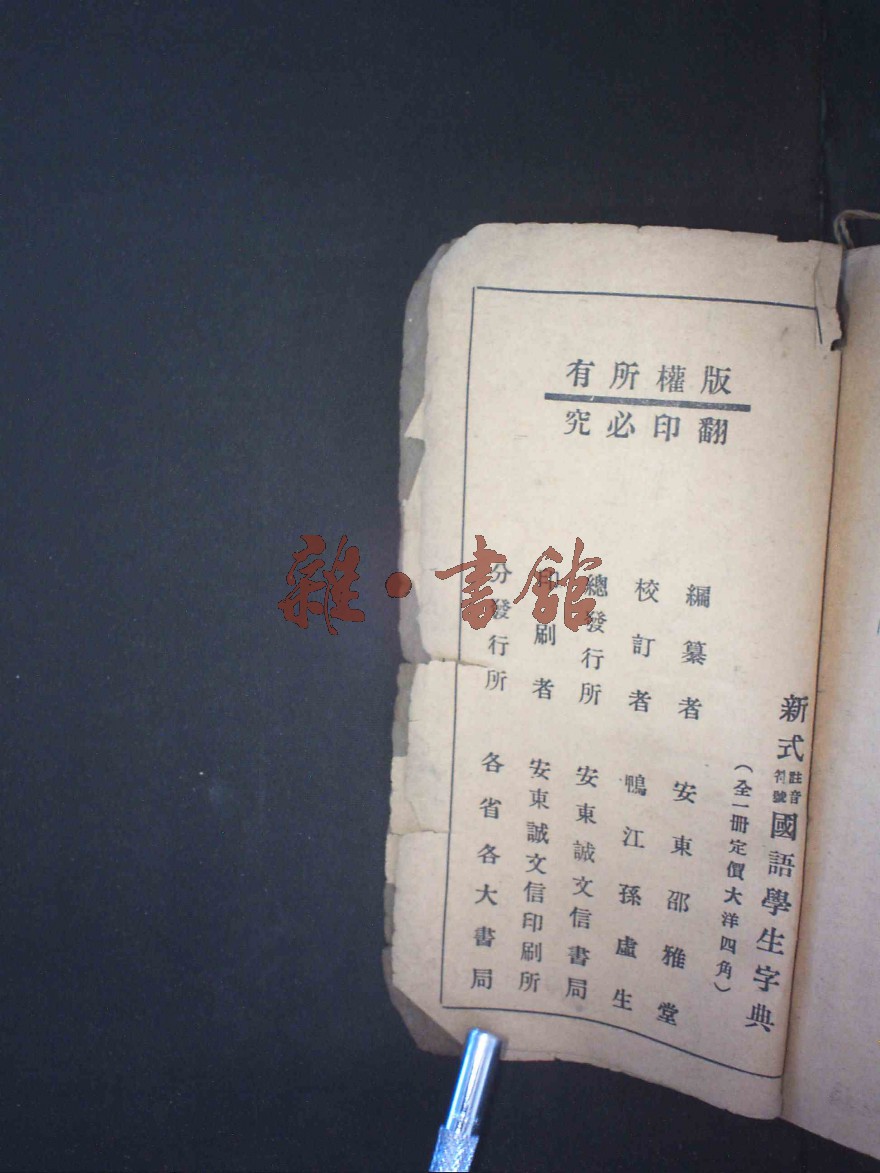 版權所有
翻印必究
新式註音符號國語學生字典
（全一册定價大洋四角）
編纂者　安東邵雅堂
校訂者　鴨江孫虛生
總發行所　安東誠文信書局
印刷者　安東誠文信印刷所
分發行所　各省各大書局
雜·書館